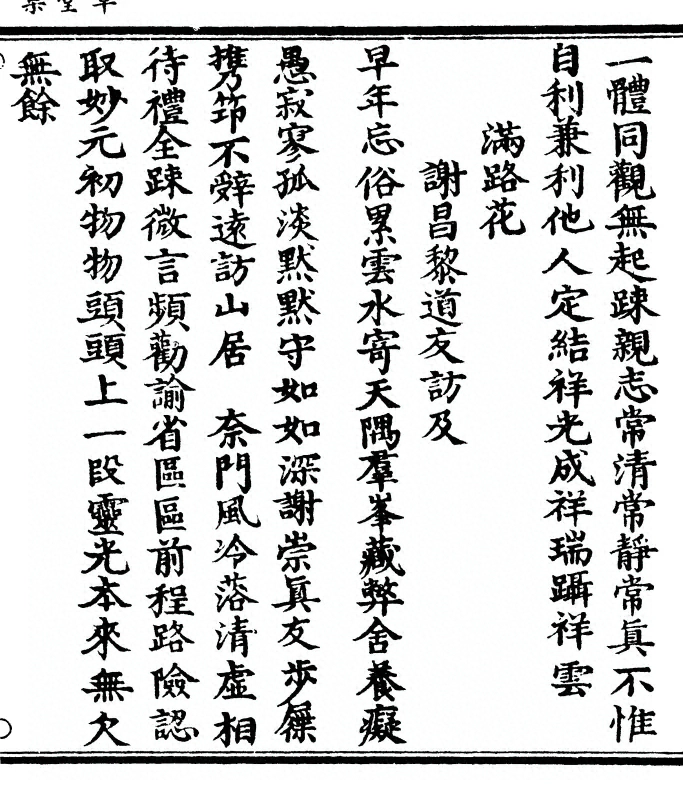 一體同觀無起踈親志常清常靜常眞不惟
自利兼利他人定結祥光成祥瑞躡祥雲
滿路花
謝昌黎道友訪及
早年忘俗累雲水寄天隅羣峯藏弊舍養癡
愚寂寥孤淡黙黙守如如深謝崇眞友步屧
携笻不辤遠訪山居　奈門風冷落清虛相
待禮全踈微言頻勸諭省區區前程路險認
取妙元初物物頭頭上一段靈光本來無欠
無餘